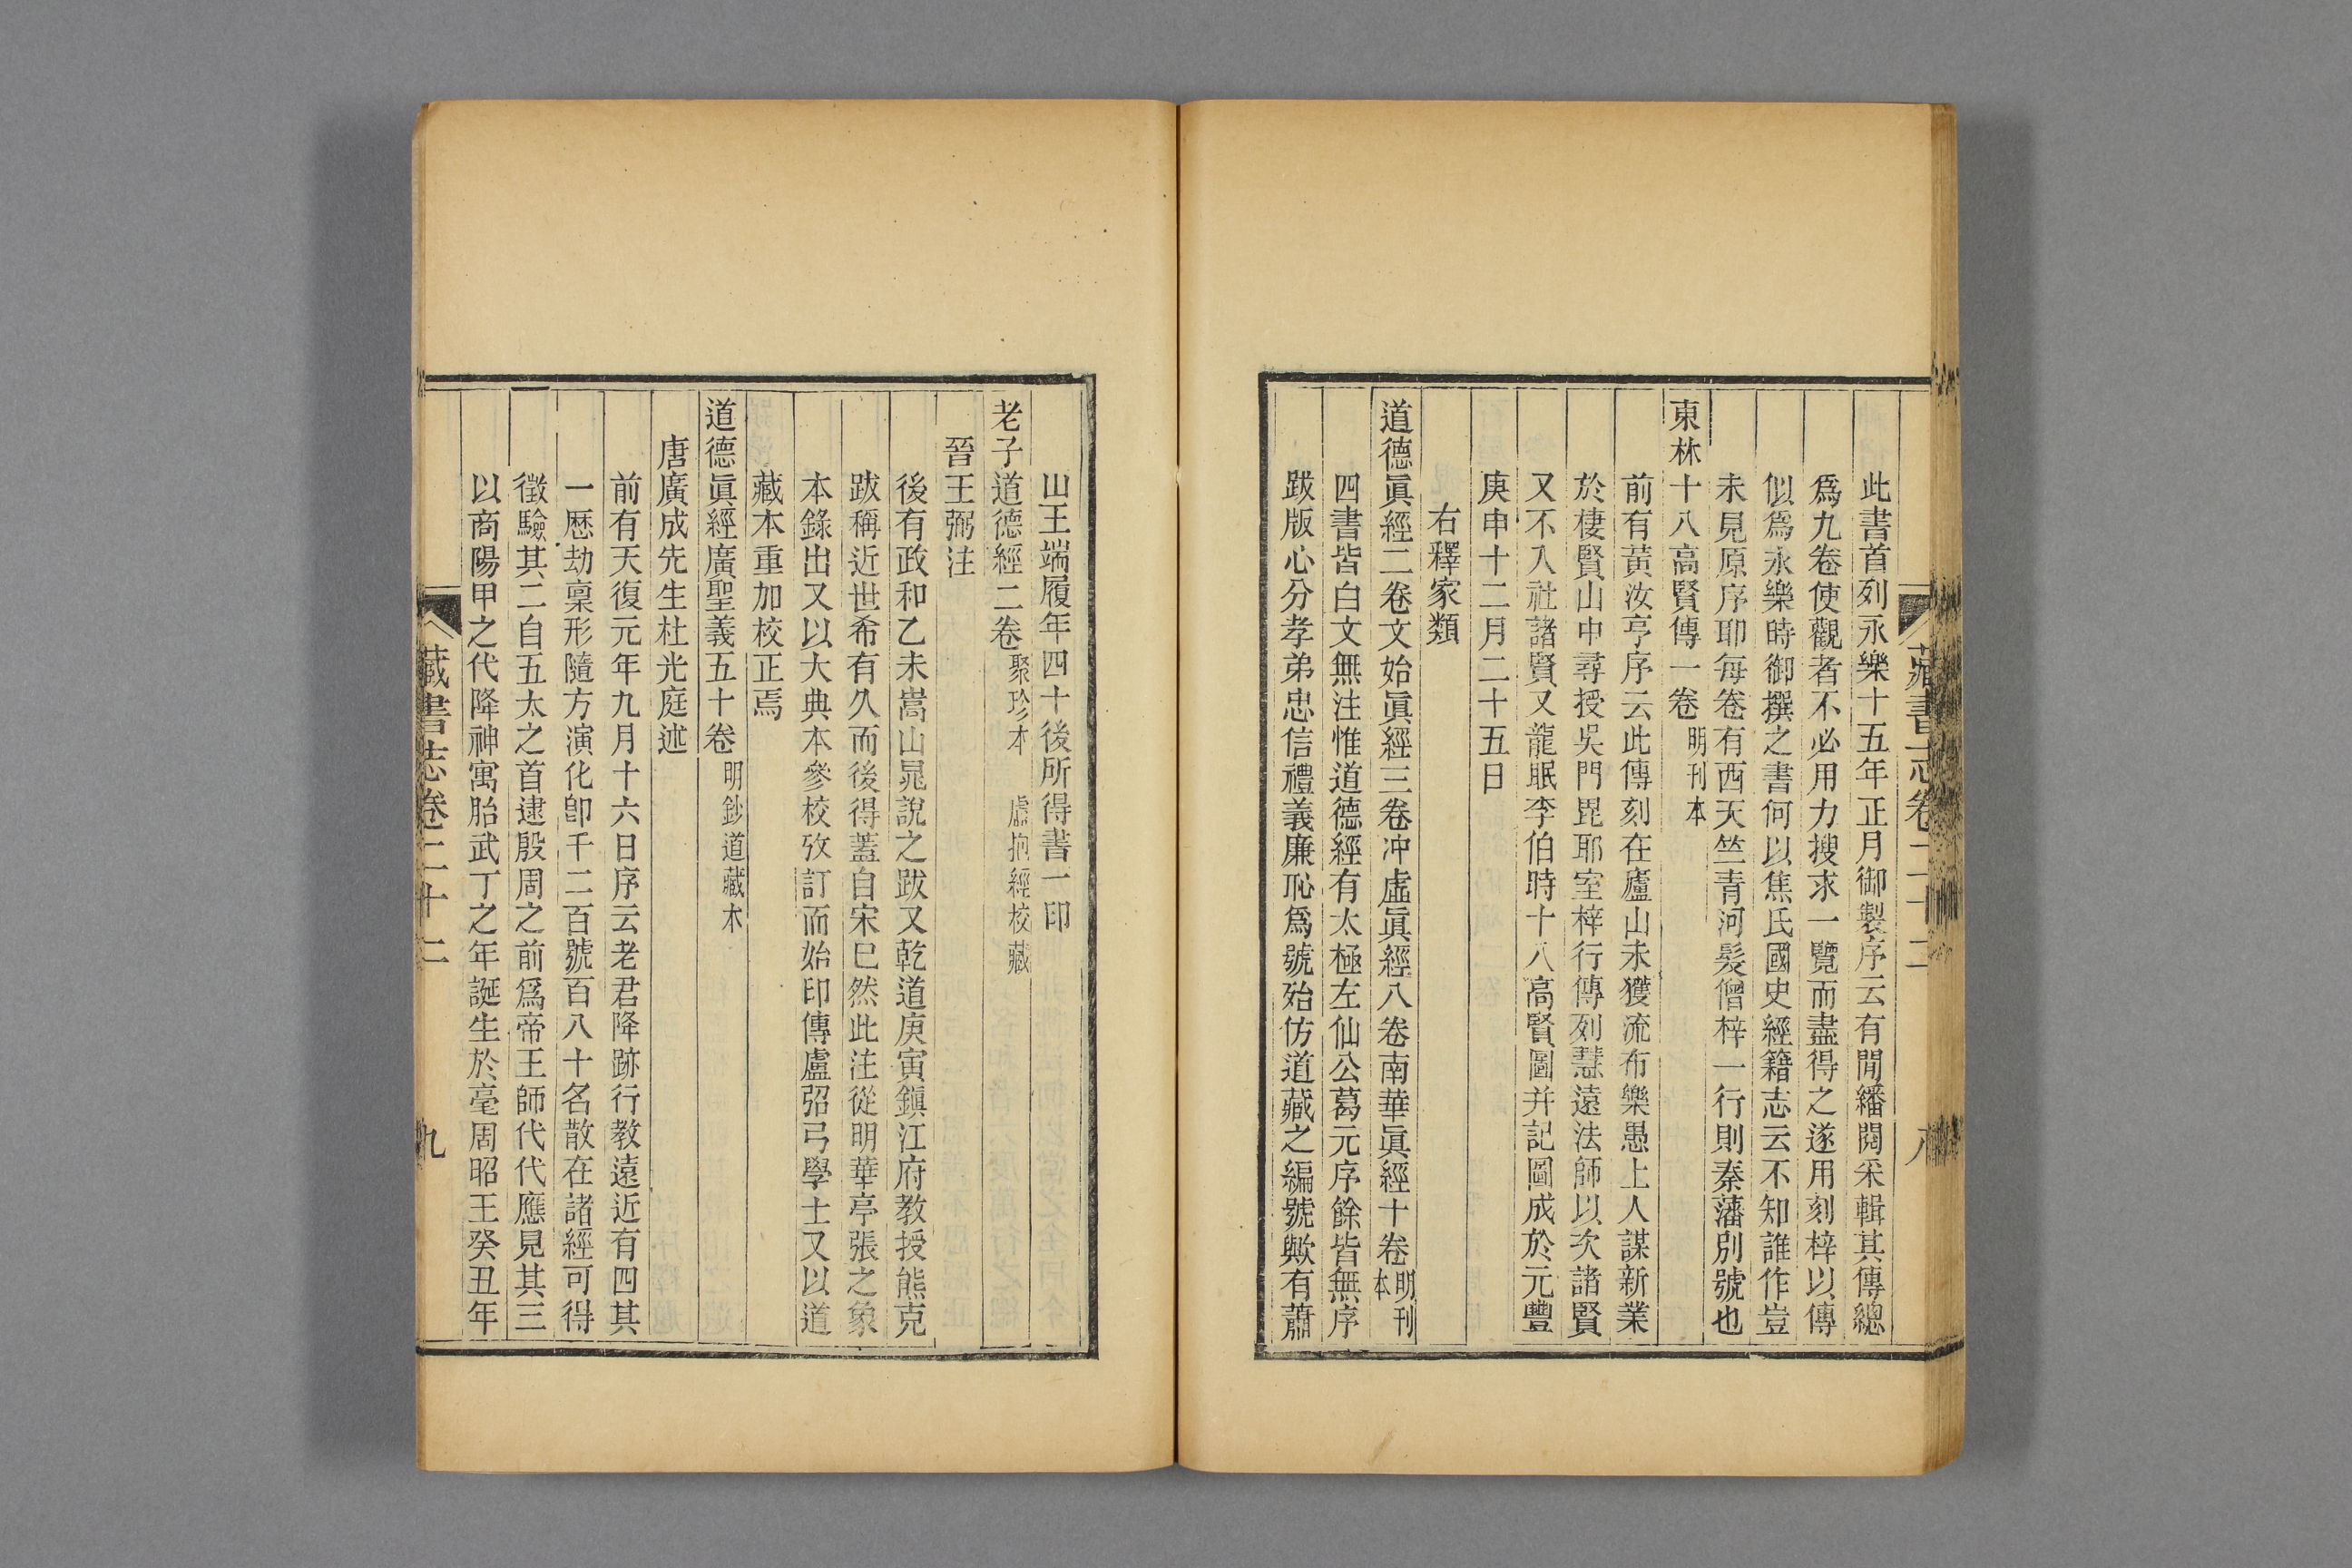 藏書志卷二十二 八
此書首列永樂十五年正月御製序云有閒繙閱采輯其傳總
爲九卷使觀者不必用力搜求一覽而盡得之遂用刻梓以傳
似爲永樂時御撰之書何以焦氏國史經籍志云不知誰作豈
未見原序耶每卷有西天竺青河髮僧梓一行則秦藩別號也
東林十八高賢傳一卷 明刊本
前有黃汝亨序云此傳刻在廬山未獲流布樂愚上人謀新業
於棲賢山中尋授吳門毘耶室梓行傳列慧遠法師以次諸賢
又不入社諸賢又龍眠李伯時十八高賢圖并記圖成於元豐
庚申十二月二十五日
右釋家類
道德眞經二卷文始眞經三卷冲虛眞經八卷南華眞經十卷 明刊本
四書皆白文無注惟道德經有太極左仙公葛元序餘皆無序
跋版心分孝弟忠信禮義廉恥爲號殆仿道藏之編號歟有蕭
山王端履年四十後所得書一印
老子道德經二卷 聚珍本 盧抱經校藏
晉王弼注
後有政和乙未嵩山晁說之跋又乾道庚寅鎭江府教授熊克
跋稱近世希有久而後得蓋自宋巳然此注從明華亭張之象
本錄出又以大典本參校攷訂而始印傳盧弨弓學士又以道
藏本重加校正焉
道德眞經廣聖義五十卷 明鈔道藏本
唐廣成先生杜光庭述
前有天復元年九月十六日序云老君降跡行教遠近有四其
一歷劫稟形隨方演化卽千二百號百八十名散在諸經可得
徵驗其二自五太之首逮殷周之前爲帝王師代代應見其三
以商陽甲之代降神寓胎武丁之年誕生於亳周昭王癸丑年
藏書志卷二十二 九